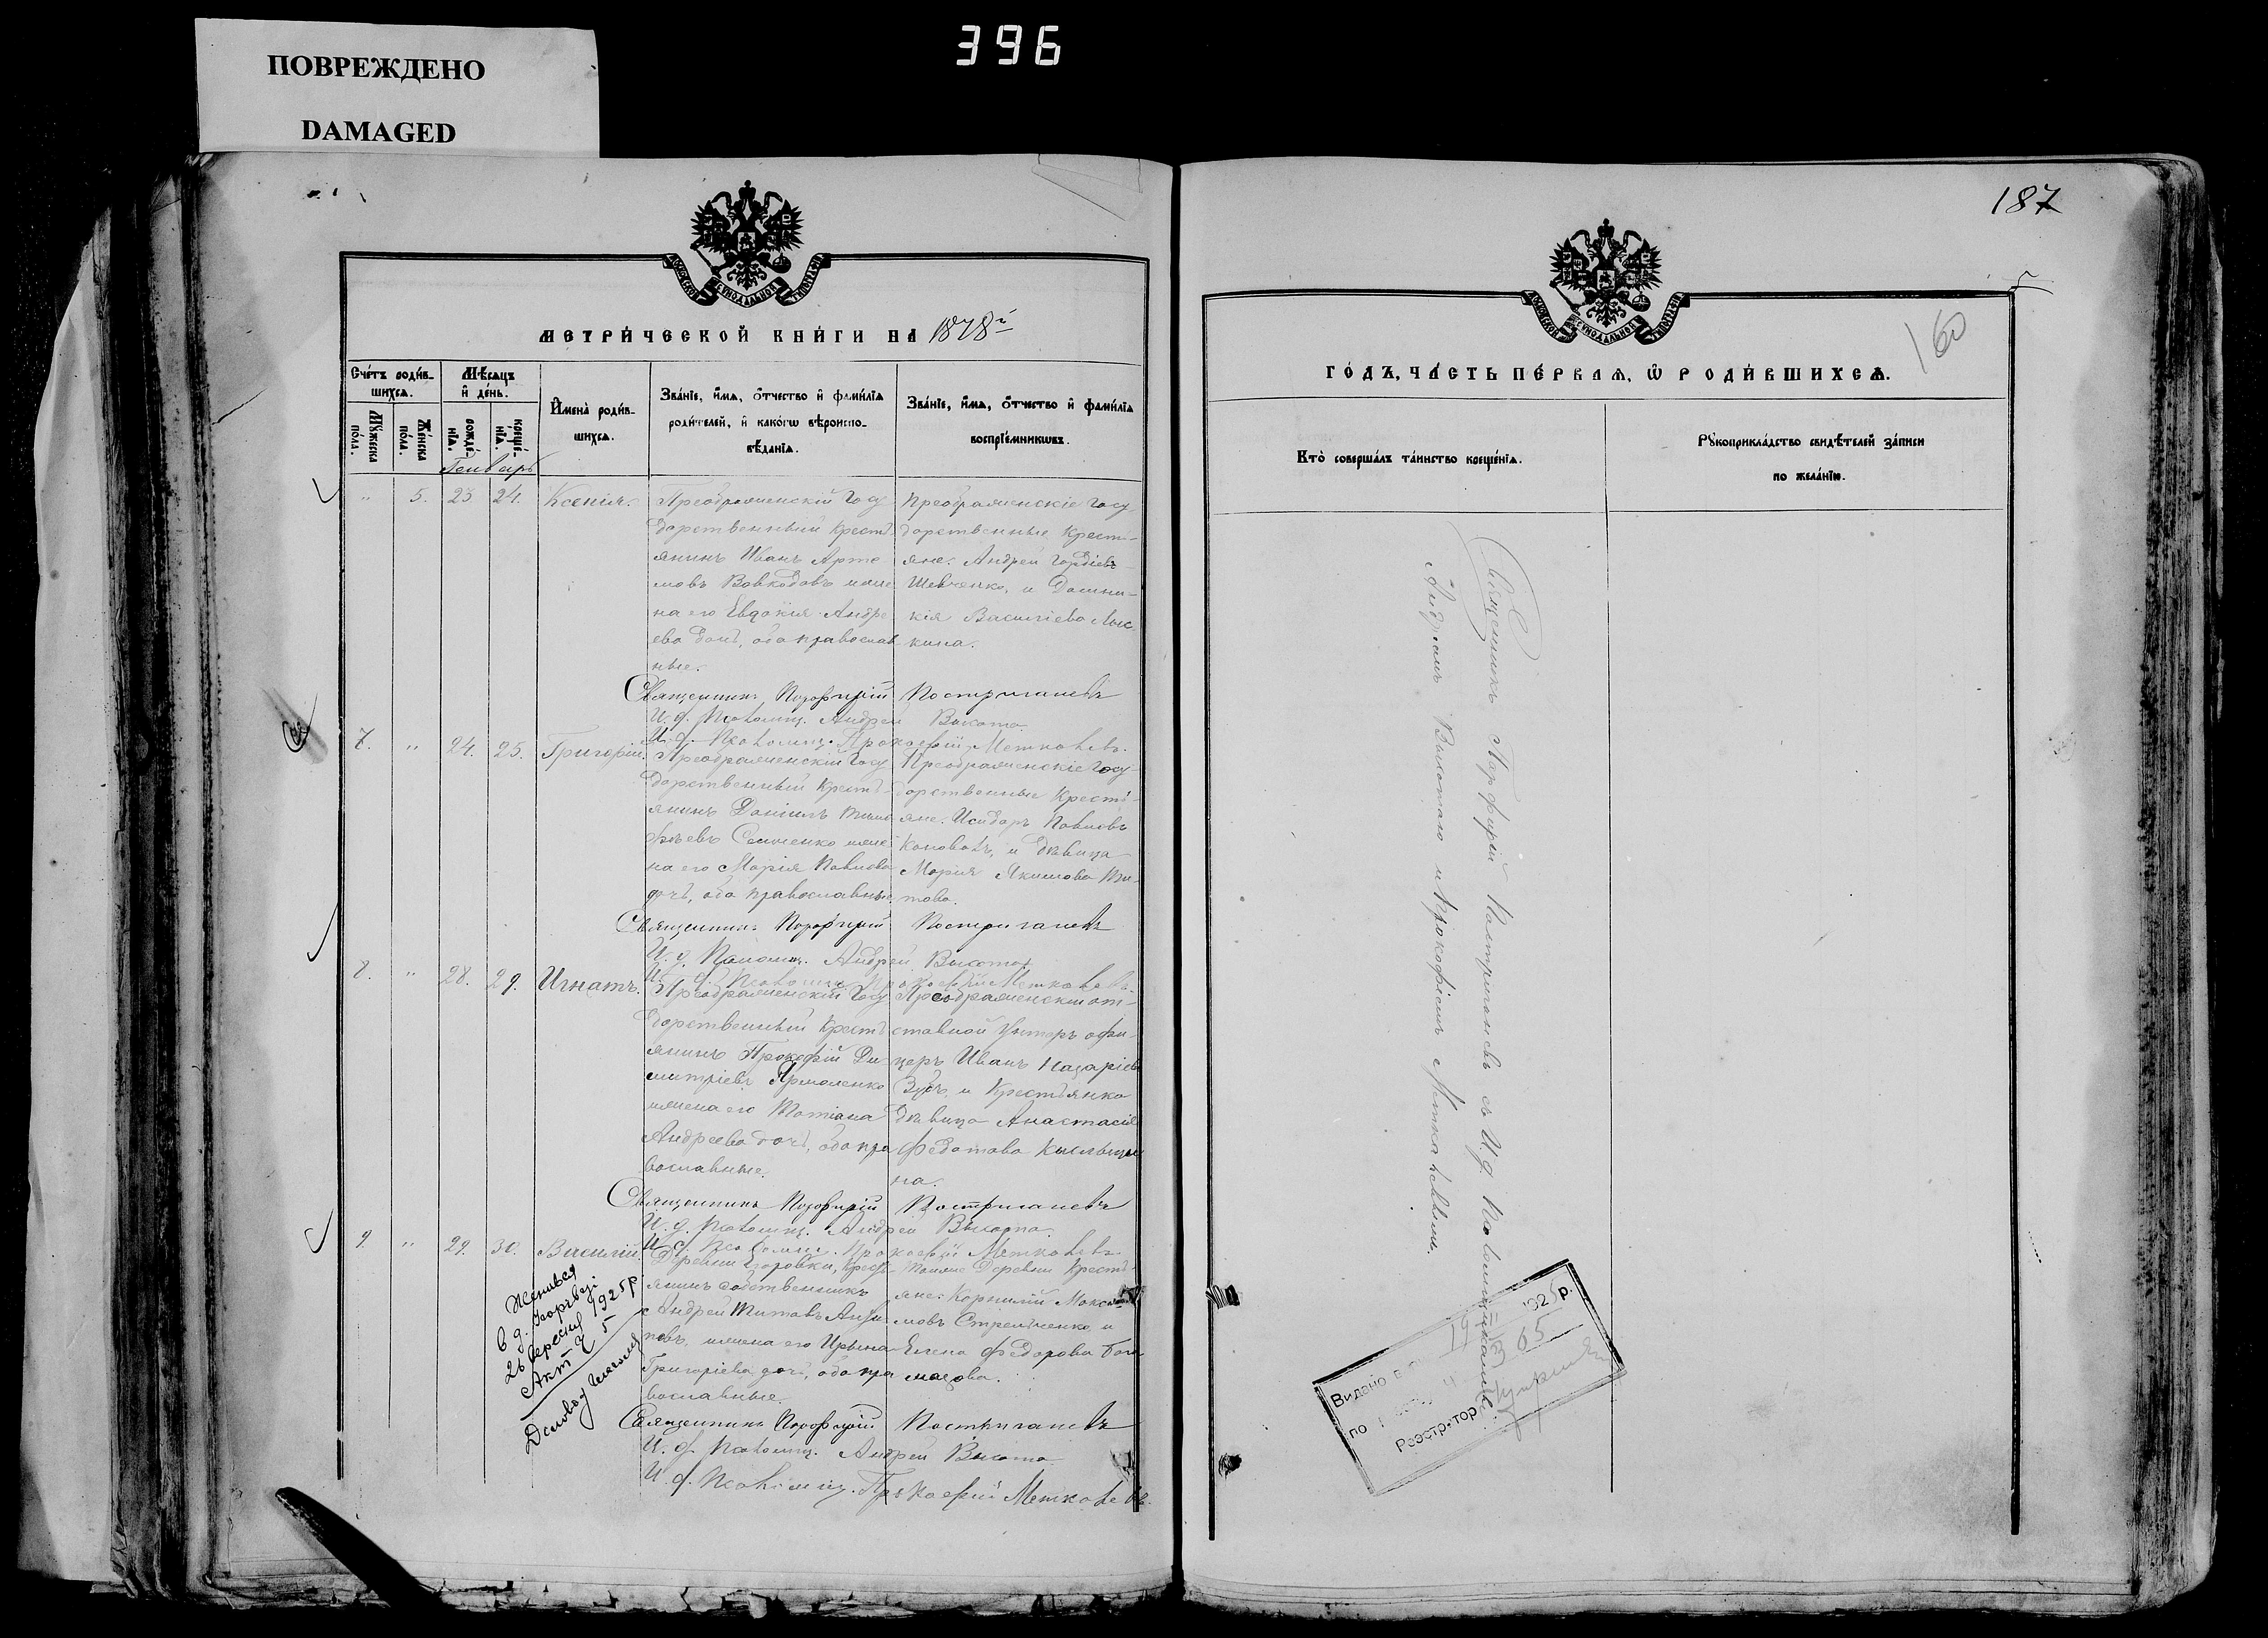 ПОВРЕЖДЕНО
DAMAGED
396
МЕТРИЧЕСКОЙ КНИГИ НА 1878й
Счетъ родив-
шихся.
Мѣсяцъ
и день.
Имена родив-
шихся.
Званіе, имя, отчество и фамилія
родителей, и какогѡ вѣроиспо-
вѣданія.
Званіе, имя, отчество и фамилія
воспріемникѡвъ.
Мужеска
пола.
Женска
пола.
рожде-
нія.
креще-
нія.
Генварь
" 5. 23 24. Ксенія.
Преображенскій Госу
дарственный крестъ
янинъ Иванъ Арте
мовъ Вовкодавъ жена
на его Евдокія Андре
ева дочь, оба православ
ные.
Преображенскіе Госу
дарственные крестъ-
яне. Андрей Гордіевъ
Шевченко, и Домни-
кія Васильева
Священникъ Порфирій Постригачевъ
И. д. Псаломщ. Андрей Высота
И. д. Псаломщ. Прокофій
7. " 24. 25. Григорій.
Преображенскій Госу
дарственный Крестъ-
янинъ Даніилъ Тимо
ѳѣевъ Семченко жена
на его Марія Павлова
дочь, оба православные
Преображенскіе Госу-
дарственные Крестъ-
яне. Исидоръ Павловъ
Коновалъ, и дѣвица
Марія Якимова Ти-
това.
Священникъ Порфирій Постригачевъ
И. д. Псаломщ. Андрей Высота
И. д. Псаломщ. Прокофій
8. " 28. 29. Игнатъ.
Преображенскій Госу
дарственный Крестъ
янинъ Прокофій Ди-
митріевъ Ярмоленко
жена его Татіана
Андреева дочь, оба пра
вославные.
Преображенскій от-
ставной Унтеръ офи-
церъ Иванъ Назаріевъ
Зубъ, и Крестьянка
дѣвица Анастасія
Федотова
на.
Священникъ Порфирій Постригачевъ
И. д. Псаломщ. Андрей Высота.
И. д. Псаломщ. Прокофій
9. " 29. 30. Василій.
Деревни Егоровки, Крестъ-
янинъ собственникъ
Андрей Титовъ
повъ, жена его Ирина
Григоріева дочь, оба пра
вославные.
Тойже Деревни Крестъ-
яне: Корнилій Макси
мовъ Стрельченко и
Елена Федорова
Священникъ Порфирій Постригачевъ
И. д. Псаломщ. Андрей Высота
И. д. Псаломщ. Прокофій
Женився
в д.
26 вересня 1925 р
Акт Ч 5
Діловод
187
160
ГОДЪ, ЧАСТЬ ПЕРВАЯ, Ѡ РОДИВШИХСЯ.
Кто совершалъ таинство крещенія.
Рукоприкладство свидѣтелей записи
по желанію.
Священникъ Парфирій Постригачевъ съ И. д. Псаломщиками
Андреемъ Высотою и Прокофіемъ
Видано
192 р.
по
65
Реэстратор